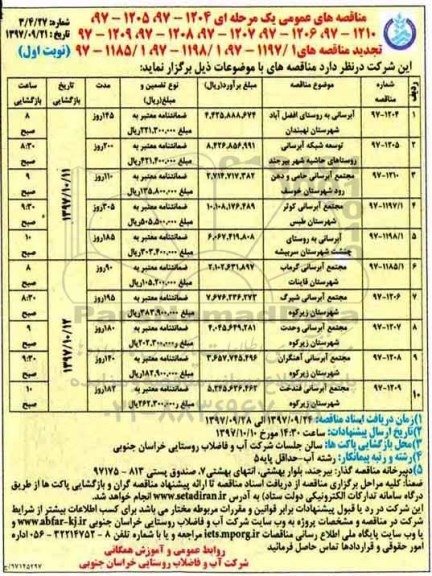 مناقصه های عمومی یک مرحله ای ۱۲۰۴ - ۹۷، ۱۲۰۵ - ۹۷،
۱۲۱۰ - ۹۷، ۱۲۰۶ - ۹۷، ۱۲۰۷ - ۹۷، ۱۲۰۸ - ۹۷، ۱۲۰۹ - ۹۷
تجدید مناقصه های ۱/ ۱۱۹۷ - ۹۷، ۱/ ۱۱۹۸ - ۹۷، ۱/ ۱۱۸۵ - ۹۷ (نوبت اول)
شماره: ۳/۴/۲۷
تاریخ: ۱۳۹۷/۰۹/۲۱
این شرکت درنظر دارد مناقصه های با موضوعات ذیل برگزار نماید:
ردیف شماره مناقصه موضوع مناقصه مبلغ برآورد(ریال) نوع تضمین و مبلغ(ریال) مدت تاریخ بازگشایی ساعت بازگشایی
۱ ۹۷-۱۲۰۴ آبرسانی به روستای افضل آباد شهرستان نهبندان ۴,۴۲۵,۸۸۸,۶۷۴ ضمانتنامه معتبر به مبلغ ۲۲۱,۳۰۰,۰۰۰ریال ۱۴۵روز ۸ صبح
۲ ۹۷-۱۲۰۵ توسعه شبکه آبرسانی روستاهای حاشیه شهر بیرجند ۸,۴۲۶,۸۵۶,۹۹۱ ضمانتنامه معتبر به مبلغ ۴۲۱,۴۰۰,۰۰۰ریال ۲۰۰روز ۸:۳۰ صبح
۳ ۹۷-۱۲۱۰ مجتمع آبرسانی حامی و دهن رود شهرستان خوسف ۲,۷۱۴,۷۱۷,۳۸۲ ضمانتنامه معتبر به مبلغ ۱۳۵,۸۰۰,۰۰۰ریال ۱۱۰روز ۱۳۹۷/۱۰/۱۱ ۹ صبح
۴ ۹۷-۱۱۹۷/۱ مجتمع آبرسانی کوثر شهرستان طبس ۱۰,۱۰۸,۱۷۶,۴۸۹ ضمانتنامه معتبر به مبلغ ۵۰۵,۵۰۰,۰۰۰ریال ۳۰۵روز ۹:۳۰ صبح
۵ ۹۷-۱۱۹۸/۱ آبرسانی به روستای چنشت شهرستان سربیشه ۶,۰۶۷,۴۱۹,۸۰۸ ضمانتنامه معتبر به مبلغ ۳۰۳,۴۰۰,۰۰۰ریال ۱۸۵روز ۱۰ صبح
۶ ۹۷-۱۱۸۵/۱ مجتمع آبرسانی گرماب شهرستان قاینات ۲,۱۰۲,۶۳۱,۸۹۷ ضمانتنامه معتبر به مبلغ ۱۰۵,۲۰۰,۰۰۰ریال ۹۰روز ۸ صبح
۷ ۹۷-۱۲۰۶ مجتمع آبرسانی شیرگ شهرستان زیرکوه ۷,۶۷۶,۲۳۶,۲۷۳ ضمانتنامه معتبر به مبلغ ۳۸۳,۹۰۰,۰۰۰ریال ۱۹۵روز ۸:۳۰ صبح
۸ ۹۷-۱۲۰۷ مجتمع آبرسانی وحدت شهرستان زیرکوه ۴,۰۴۵,۶۴۹,۲۸۱ ضمانتنامه معتبر به مبلغ ۲۰۲,۳۰۰,۰۰۰ریال ۱۸۰روز ۱۳۹۷/۱۰/۱۲ ۹ صبح
۹ ۹۷-۱۲۰۸ مجتمع آبرسانی آهنگران شهرستان زیرکوه ۳,۶۵۷,۷۴۵,۴۹۶ ضمانتنامه معتبر به مبلغ ۱۸۲,۹۰۰,۰۰۰ریال ۱۲۰روز ۹:۳۰ صبح
۱۰ ۹۷-۱۲۰۹ مجتمع آبرسانی فندخت شهرستان زیرکوه ۵,۲۴۵,۶۲۶,۴۶۳ ضمانتنامه معتبر به مبلغ ۲۶۲,۳۰۰,۰۰۰ریال ۱۸۲روز ۱۰ صبح
۱)زمان دریافت اسناد مناقصه: ۱۳۹۷/۰۹/۲۴ الی ۱۳۹۷/۰۹/۲۸
۲)تاریخ ارسال پیشنهادات: ساعت ۱۴:۳۰ مورخ ۱۳۹۷/۱۰/۱۰
۳)محل بازگشایی پاکت ها: سالن جلسات شرکت آب و فاضلاب روستایی خراسان جنوبی
۴)رشته و رتبه پیمانکار: رشته آب -حداقل پایه۵
۵)دبیرخانه مناقصه گذار: بیرجند، بلوار بهشتی، انتهای بهشتی۷، صندوق پستی ۸۱۳ - ۹۷۱۷۵
ضمناً: کلیه مراحل برگزاری مناقصه از دریافت اسناد مناقصه تا ارائه پیشنهاد مناقصه گران و بازگشایی پاکت ها از طریق
درگاه سامانه تدارکات الکترونیکی دولت ستاد) به آدرس www.setadiran.ir انجام خواهد شد.
این شرکت در رد یا قبول پیشنهادات برابر قوانین و مقررات مربوطه مختار می باشد برای کسب اطلاعات بیشتر از شرایط
شرکت در مناقصه و مشخصات پروژه به وب سایت شرکت آب و فاضلاب روستایی خراسان جنوبی www.abfar-kj.ir و
یا وب سایت پایگاه ملی اطلاع رسانی مناقصات iets.mporg.ir مراجعه و یا با شماره تلفن ۸ - ۳۲۲۱۴۷۵۲ - ۰۵۶ اداره
امور حقوقی و قراردادها تماس حاصل فرمائید
روابط عمومی و آموزش همگانی
شرکت آب و فاضلاب روستایی خراسان جنوبی